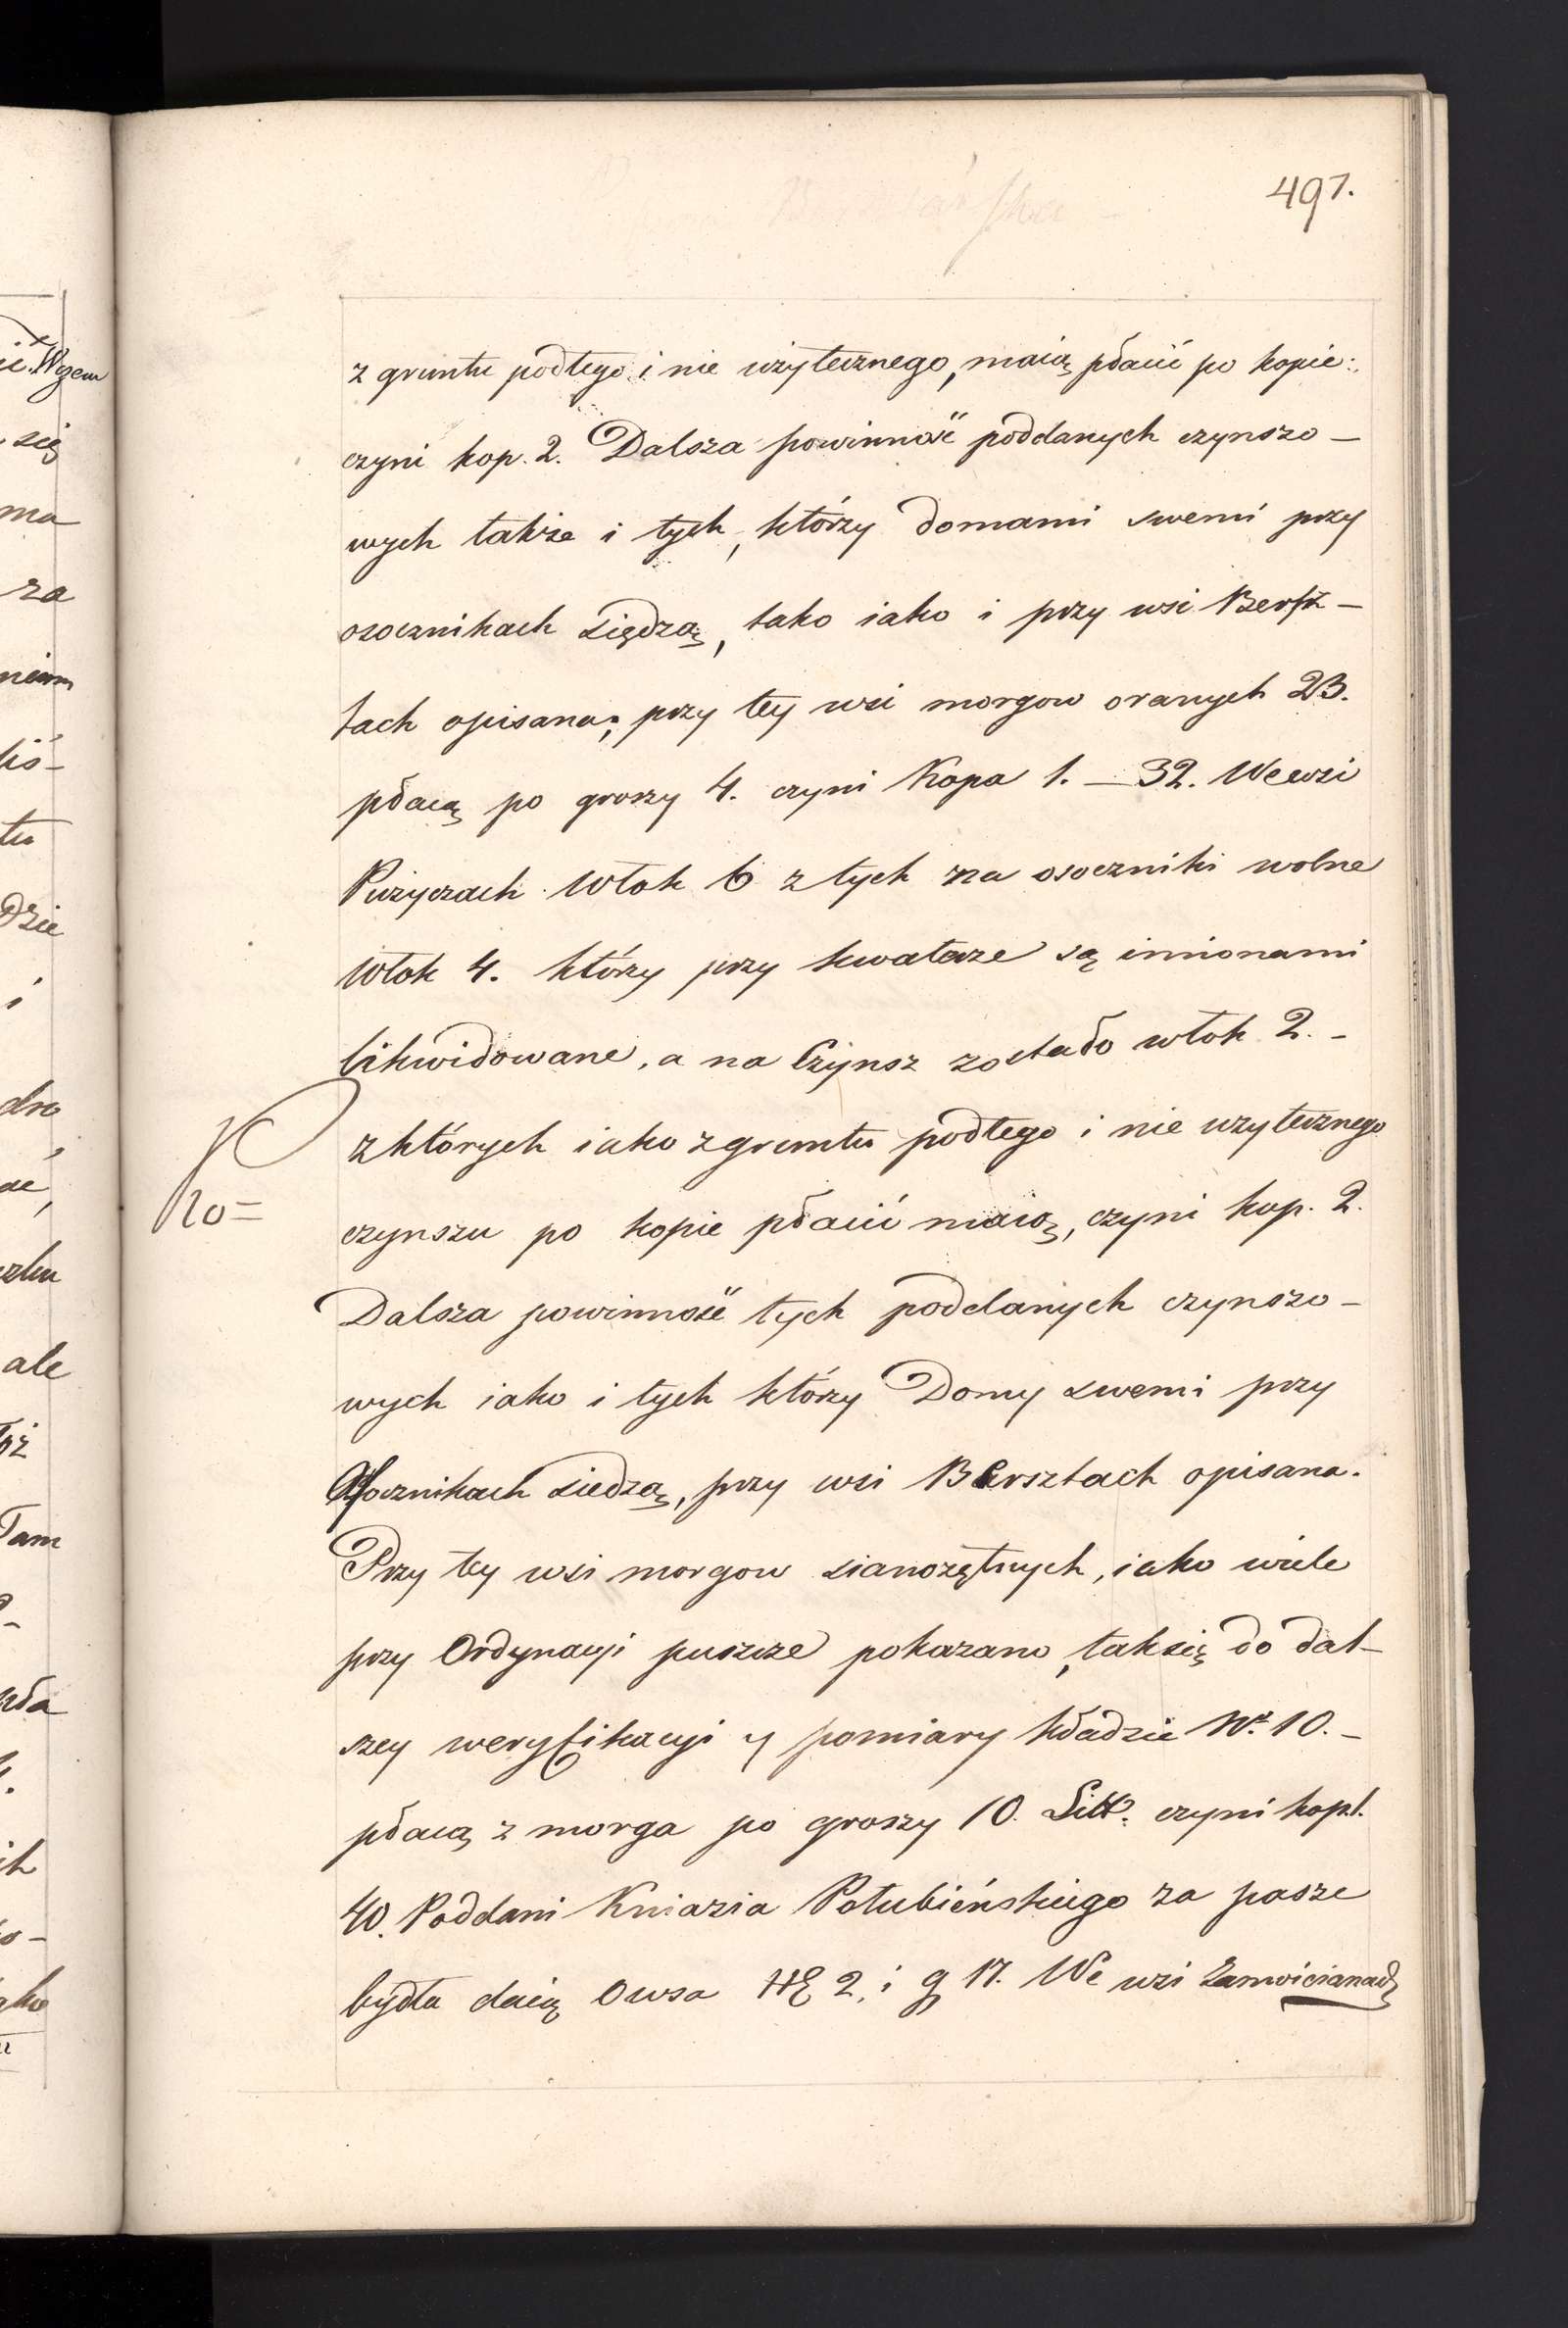 497.
z gruntu podłego i nie użytecznego, maią płacić po kopie:
czyni kop. 2. Dalsza powinność poddanych czynszo-
wych także i tych, którzy domami swemi przy
osocznikach siędzą, tako iako i przy wsi Bersz-
tach opisana; przy tey wsi morgow oranych 23.
płacą po groszy 4. czyni Kopa 1. - 32. We wsi
Puzyczach Włok 6 z tych na osoczniki wolne
Włok 4. którzy przy kwaterze są imionami
likwidowane, a na Czynsz zostało włok 2. -
z których iako z gruntu podłego i nie uzytecznego
czynszu po kopie płacić maią, czyni kop. 2.
Dalsza powinność tych poddanych czynszo-
wych iako i tych którzy Domy swemi przy
Osocznikach siedzą, przy wsi Bersztach opisana.
Przy tey wsi morgow sianożętnych, iako wiele
przy Ordynacyi puszcze pokazano, tak się do dal-
szey weryfikacyi y pomiary kładzie Nr. 10. -
płacą z morga po groszy 10. Litt. czyni kop. 1.
40. Poddani Kniazia Połubińskiego za pasze
bydła daią Owsa 2, i g 17. We wsi Zamoicianach